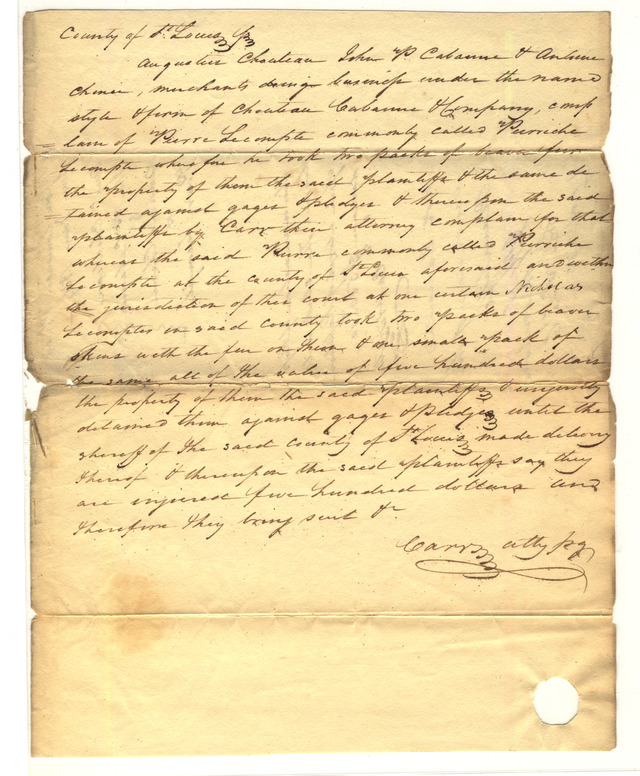 County of St Louis
Augustus Chouteau John P Cabanne & Antoine
Chenie, merchants doing business under the name
style & firm of Chouteau Cabanne & Company, comp
lain of Pierre Lecompte commonly called Pierriche
Lecompte wherefore he took two packs of beaver fur
the property of them the said plaintiffs & the same de
tained against gages & pledges & thereupon the said
plaintiffs by Carr their attorney complain for that
whereas the said Pierre commonly called Pierriche
Lecompte at the county of St Louis aforesaid and within
the jurisdiction of this court at one certain Nicholas
Lecomptes in said county took two packs of beaver
skins with the fur on them & one small pack of
the same all of the value of five hundred dollars
the property of them the said plaintiffs & unjustly
detained them against gages & pledges until the
sheriff of the said county of St Louis made delivery
thereof & thereupon the said plaintiffs say they
are injured five hundred dollars and
therefore they bring suit &c
Carr atty pq